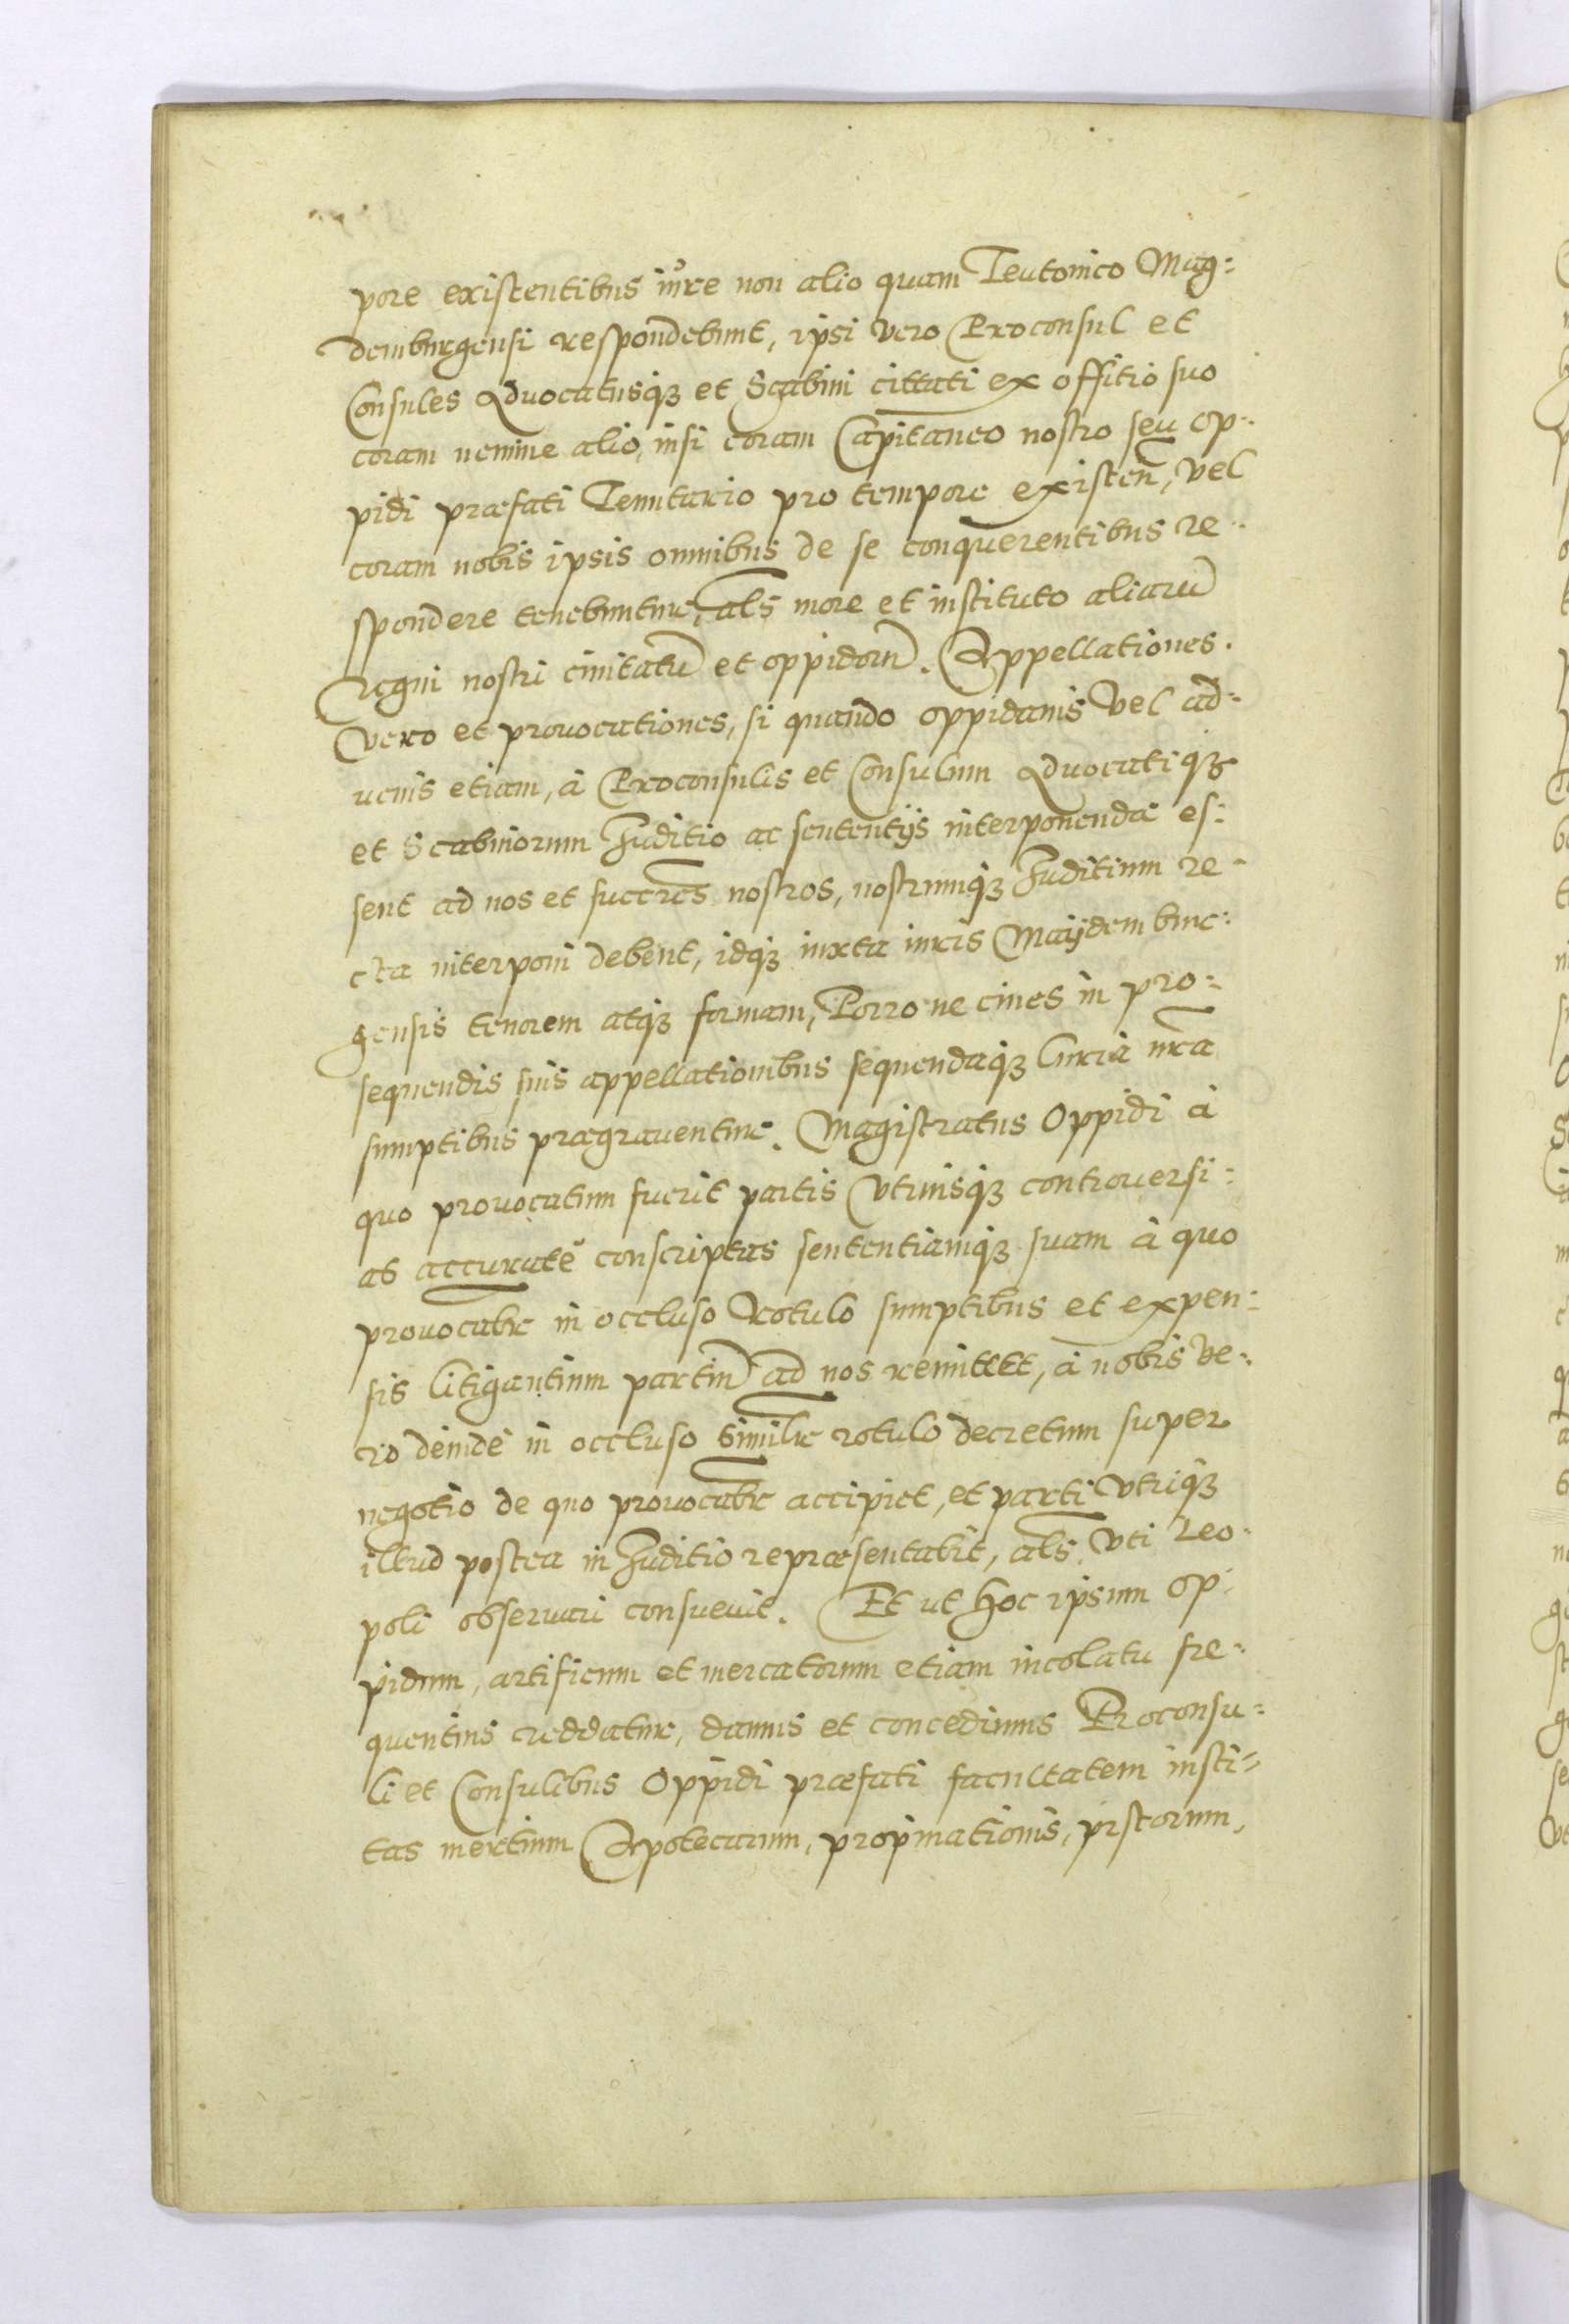 pore existentibus iure non alio quam Teutonico Mag:
demburgensi respondebunt, ipsi vero Proconsul et
Consules Aduocatusqz et Scabini cittati ex offitio suo
coram nemine alio, nisi coram Capitaneo nostro seu op:
pidi præfati Tenutario pro tempore existen̄, vel
coram nobis ipsis omnibus de se conquerentibus re:
spondere tenebuntur, als more et instituto aliarū
Regni nostri ciuitatū et oppidorū. Appellationes.
Vero et prouocationes, si quando oppidanis vel ad:
uenis etiam, à Proconsulis et Consulum Aduocatiqz
et Scabinorum Juditio ac sententijs interponendæ es:
sent ad nos et succrēs nostros, nostrumqz Juditium re:
cta interponi debent, idqz iuxta iuris Maÿdembur:
gensis tenorem atqz formam, Porro ne ciues in pro:
sequendis suis appellationibus sequendaqz Curia nr̄a
sumptibus prægrauentur. Magistratus Oppidi à
quo prouocatum fuerit partis vtriusqz controuersi:
as accuratè conscriptas sententiamqz suam à quo
prouocatr in occluso Rotulo sumptibus et expen:
sis litigantium partiū ad nos remittet, à nobis ve:
rò deindè in occluso similr rotulo decretum super
negotio de quo prouocatr accipiet, et parti vtriqz
illud postea in Juditio repræsentabit, als vti Leo:
poli obseruari consueuit. Et ut hoc ipsum op:
pidum, artificum et mercatorum etiam incolatu fre:
quentius reddatur, damus et concedimus Proconsu:
li et Consulibus Oppidi præfati facultatem insti:
tas mertium Apotecarum, propinationis, pistorum,